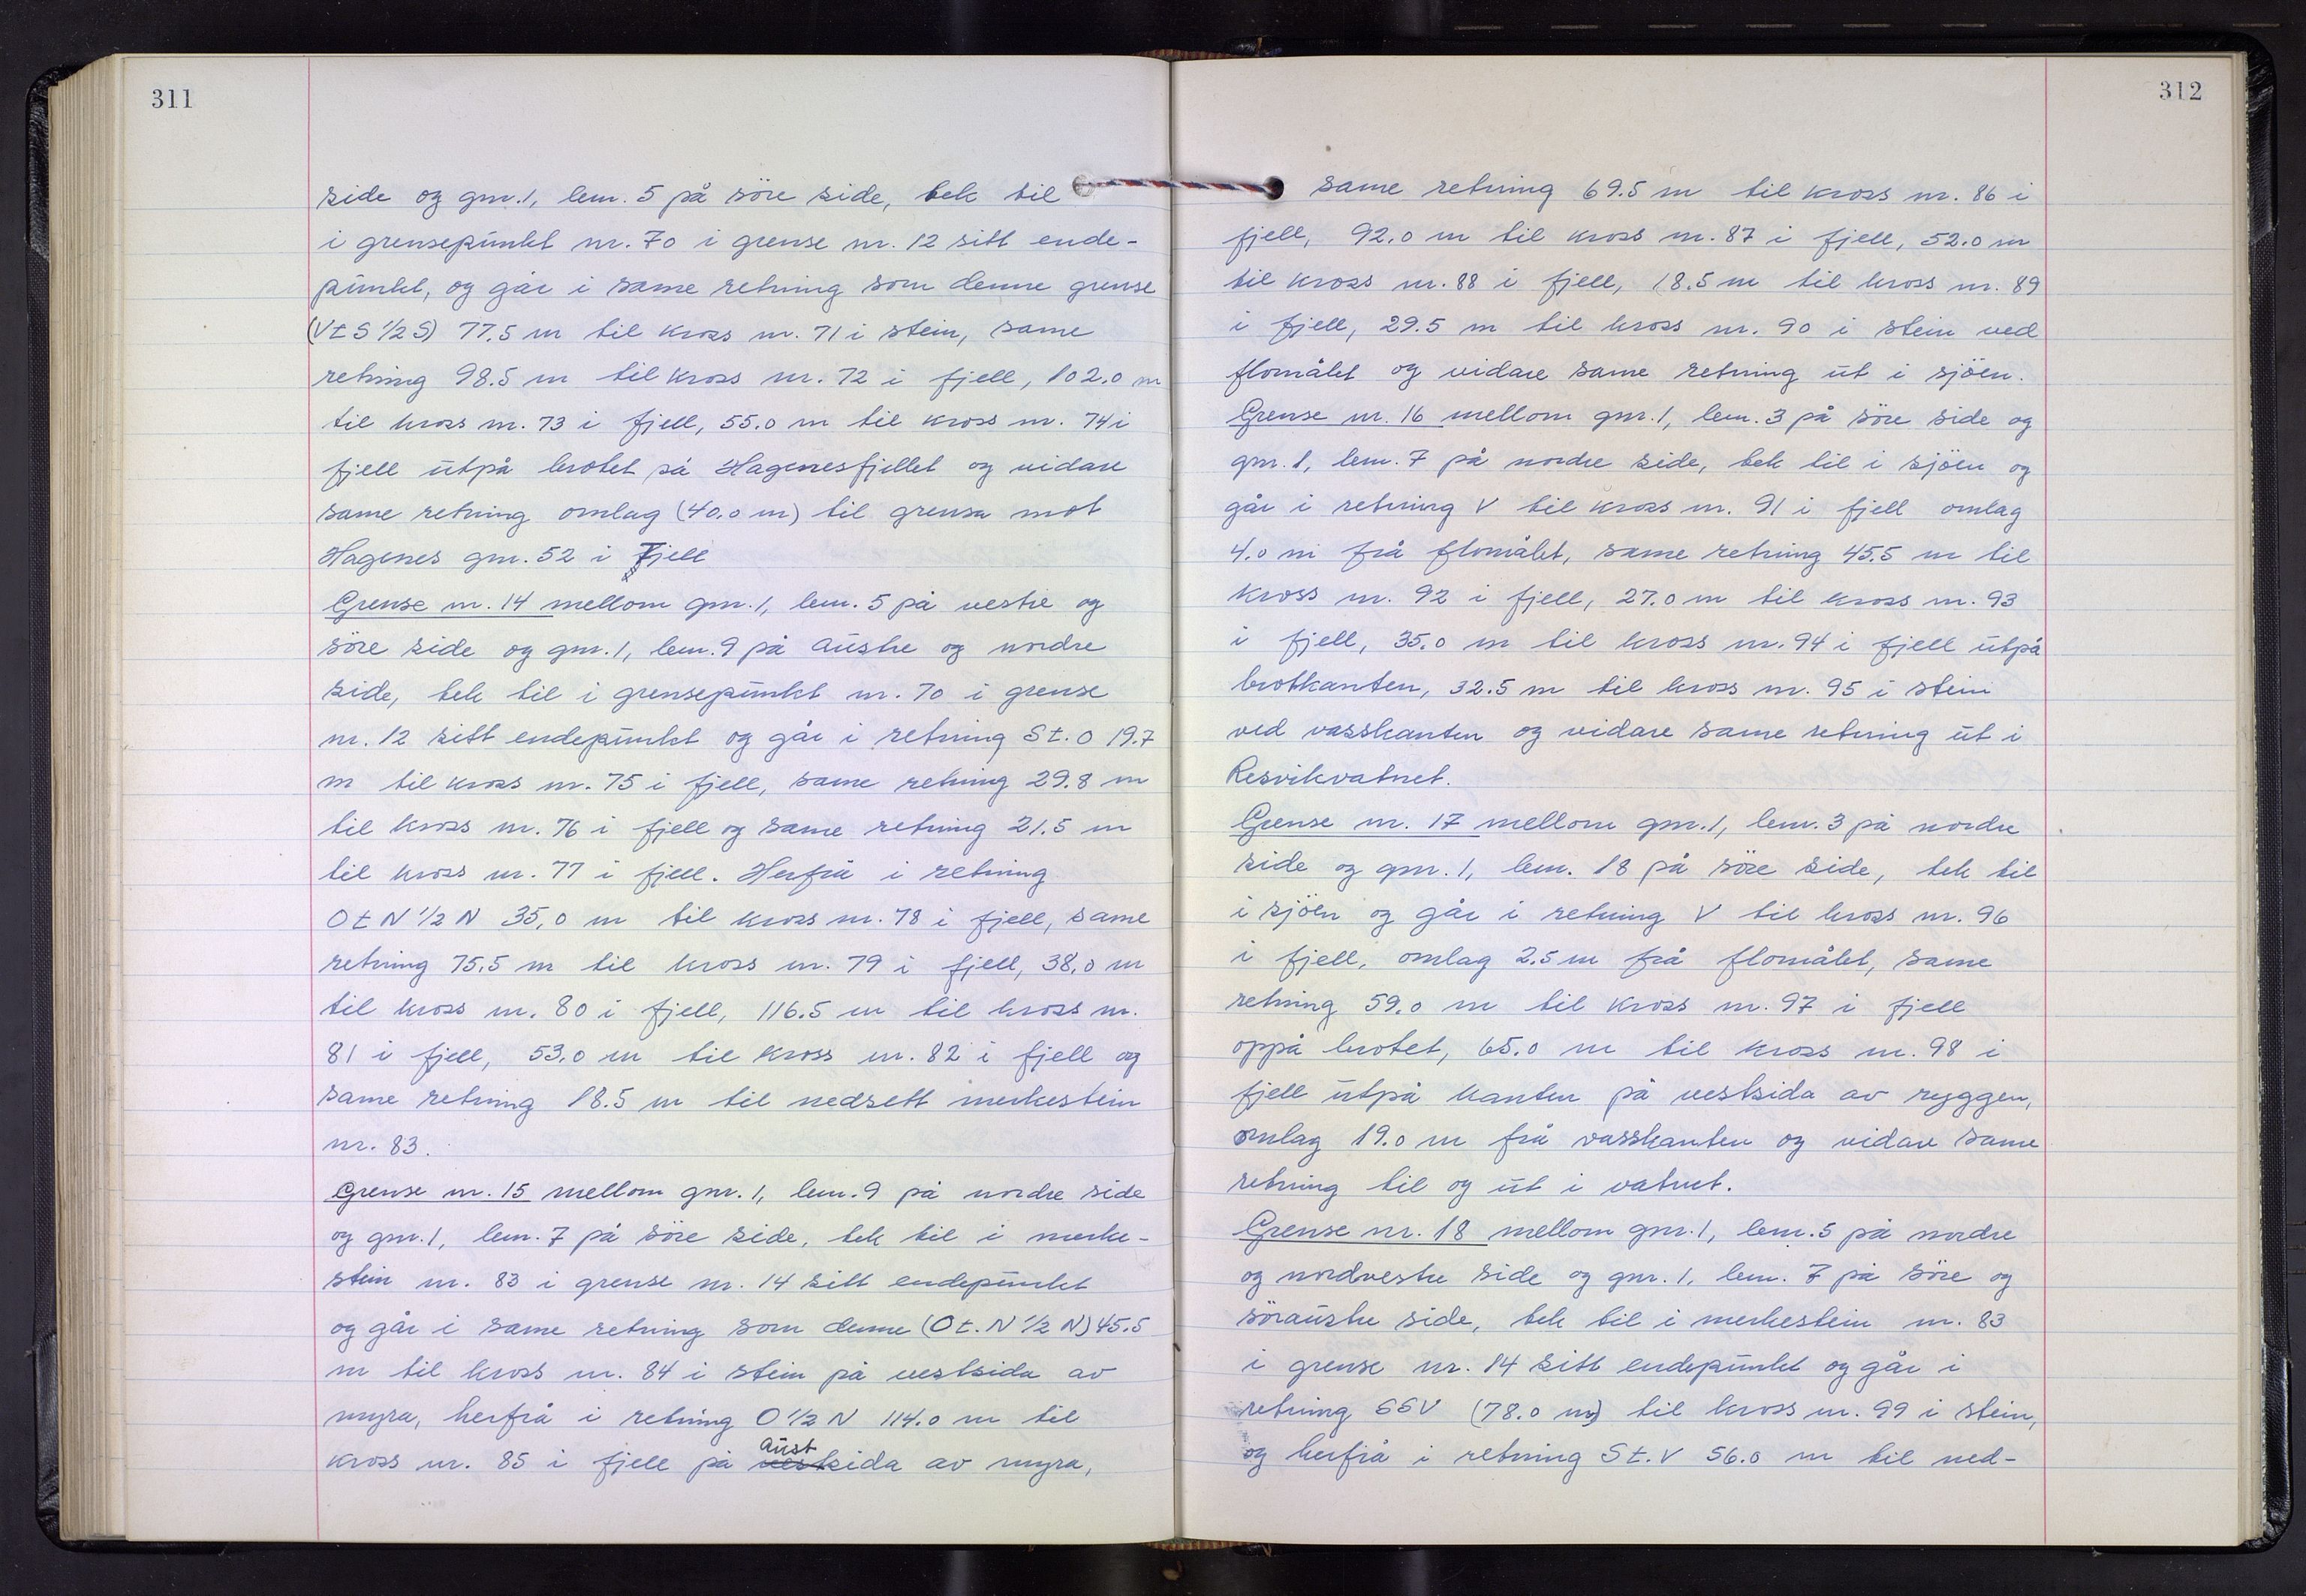 311
side og gnr.1, lnr. 5 på söre side, tek til
i grensepunkt nr. 70 i grense nr. 12 sitt ende-
punkt, og går i same retning som denne grense
(Vt S 1/2 S) 77.5 m til kross nr. 71 i stein, same
retning 98.5 m til kross nr. 72 i fjell, 102.0 m
til kross nr. 73 i fjell, 55.0 m til kross nr. 74 i
fjell utpå brotet på Hagenesfjellet og vidare
same retning omlag (40.0 m) til grensa mot
Hagenes gnr. 52 i Fjell
Grense nr. 14 mellom gnr.1, lnr. 5 på vestre og
söre side og gnr.1, lnr. 9 på austre og nordre
side, tek til i grensepunkt nr. 70 i grense
nr. 12 sitt endepunkt og går i retning St. O 19.7
m til kross nr. 75 i fjell, same retning 29.8 m
til kross nr. 76 i fjell og same retning 21.5 m
til kross nr. 77 i fjell. Herfrå i retning
O t N 1/2 N 35,0 m til kross nr. 78 i fjell, same
retning 75.5 m til kross nr. 79 i fjell, 38.0 m
til kross nr. 80 i fjell, 116.5 m til kross nr.
81 i fjell, 53.0 m til kross nr. 82 i fjell og
same retning 18.5 m til nedsett merkestein
nr. 83.
Grense nr. 15 mellom gnr. 1, lnr. 9 på nordre side
og gnr.1, lnr. 7 på söre side, tek til i merke-
stein nr. 83 i grense nr. 14 sitt endepunkt
og går i same retning som denne (Ot. N 1/2 N) 45.5
m til kross nr. 84 i stein på vestsida av
myra, herfrå i retning O 1/2 N 114.0 m til
aust
kross nr. 85 i fjell på vestsida av myra,
312
same retning 69.5 m til kross nr. 86 i
fjell, 92.0 m til kross nr. 87 i fjell, 52.0 m
til kross nr. 88 i fjell, 18.5 m til kross nr. 89
i fjell, 29.5 m til kross nr. 90 i stein ved
flomålet og vidare same retning ut i sjöen.
Grense nr. 16 mellom gnr.1, lnr. 3 på söre side og
gnr. 1, lnr. 7 på nordre side, tek til i sjöen og
går i retning V til kross nr. 91 i fjell omlag
4.0 m frå flomålet, same retning 45.5 m til
kross nr. 92 i fjell, 27.0 m til kross nr. 93
i fjell, 35.0 m til kross nr. 94 i fjell utpå
brotkanten, 32.5 m til kross nr. 95 i stein
ved vasskanten og vidare same retning ut i
Resvikvatnet.
Grense nr. 17 mellom gnr.1, lnr. 3 på nordre
side og gnr. 1, lnr. 18 på söre side, tek til
i sjöen og går i retning V til kross nr. 96
i fjell, omlag 2.5 m frå flomålet, same
retning 59.0 m til kross nr. 97 i fjell
oppå brotet, 65.0 m til kross nr. 98 i
fjell utpå kanten på vestsida av ryggen,
omlag 19.0 m frå vasskanten og vidare same
retning til og ut i vatnet.
Grense nr. 18 mellom gnr.1, lnr. 5 på nordre
og nordvestre side og gnr. 1, lnr. 7 på söre og
söraustre side, tek til i merkestein nr. 83
i grense nr. 14 sitt endepunkt og går i
retning SSV (78.0 m) til kross nr. 99 i stein,
og herfrå i retning St. V 56.0 m til ned-